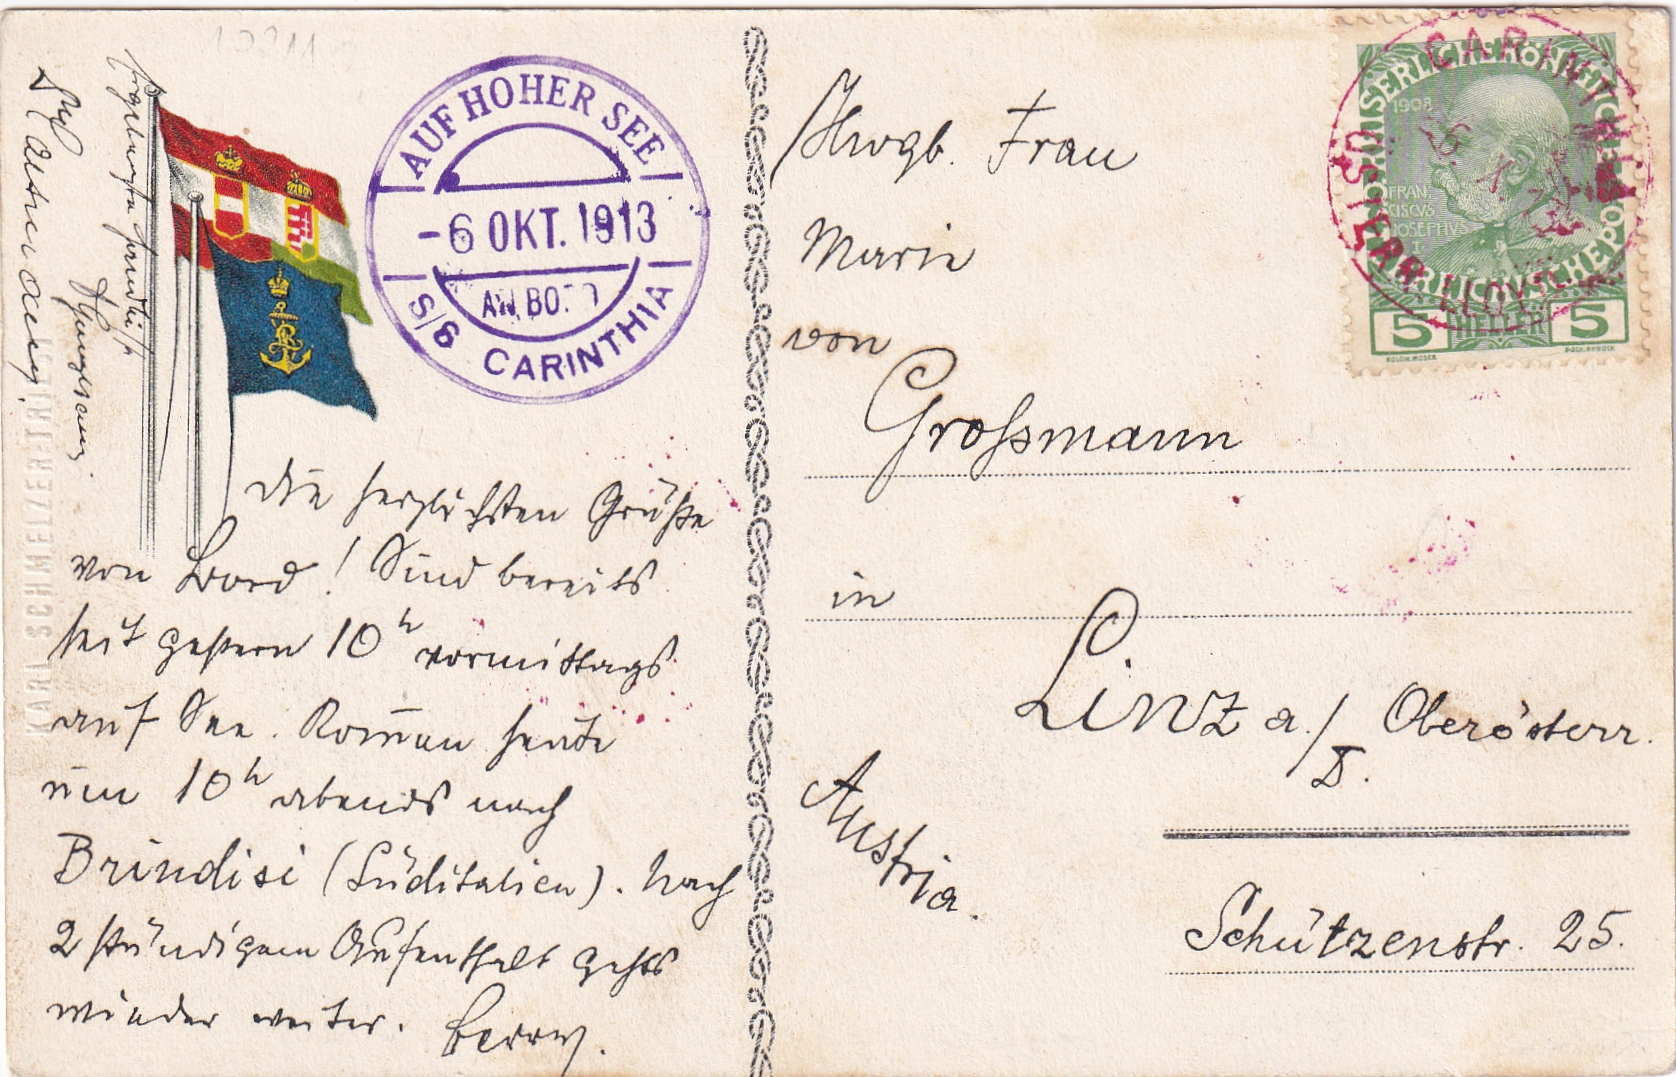 AUF HOHER SEE
-6 OKT. 1913
AN BORD
S/S CARINTHIA
KARL SCHMELZER TRIEST
die herzlichsten Grüße
von Bord! Sind bereits
seit gestern 10h vormittags
auf See. Kom̄en heute
um 10h abends nach
Brindisi (Süditalien). Nach
2 stündigem Aufenthalt gehts
wieder weiter.
Hwgb. Frau
Marie
von
Grossmann
in
Linz a/ Oberösterr.
D.
Austria.
Schützenstr. 25.
CARINTHIA
KAISERLICHE KÖNIGLICHE
ÖSTERREICHISCHE POST
1908
FRAN
CISCVS
IOSEPHVS
I
5 HELLER 5
KOLOM. MOSER